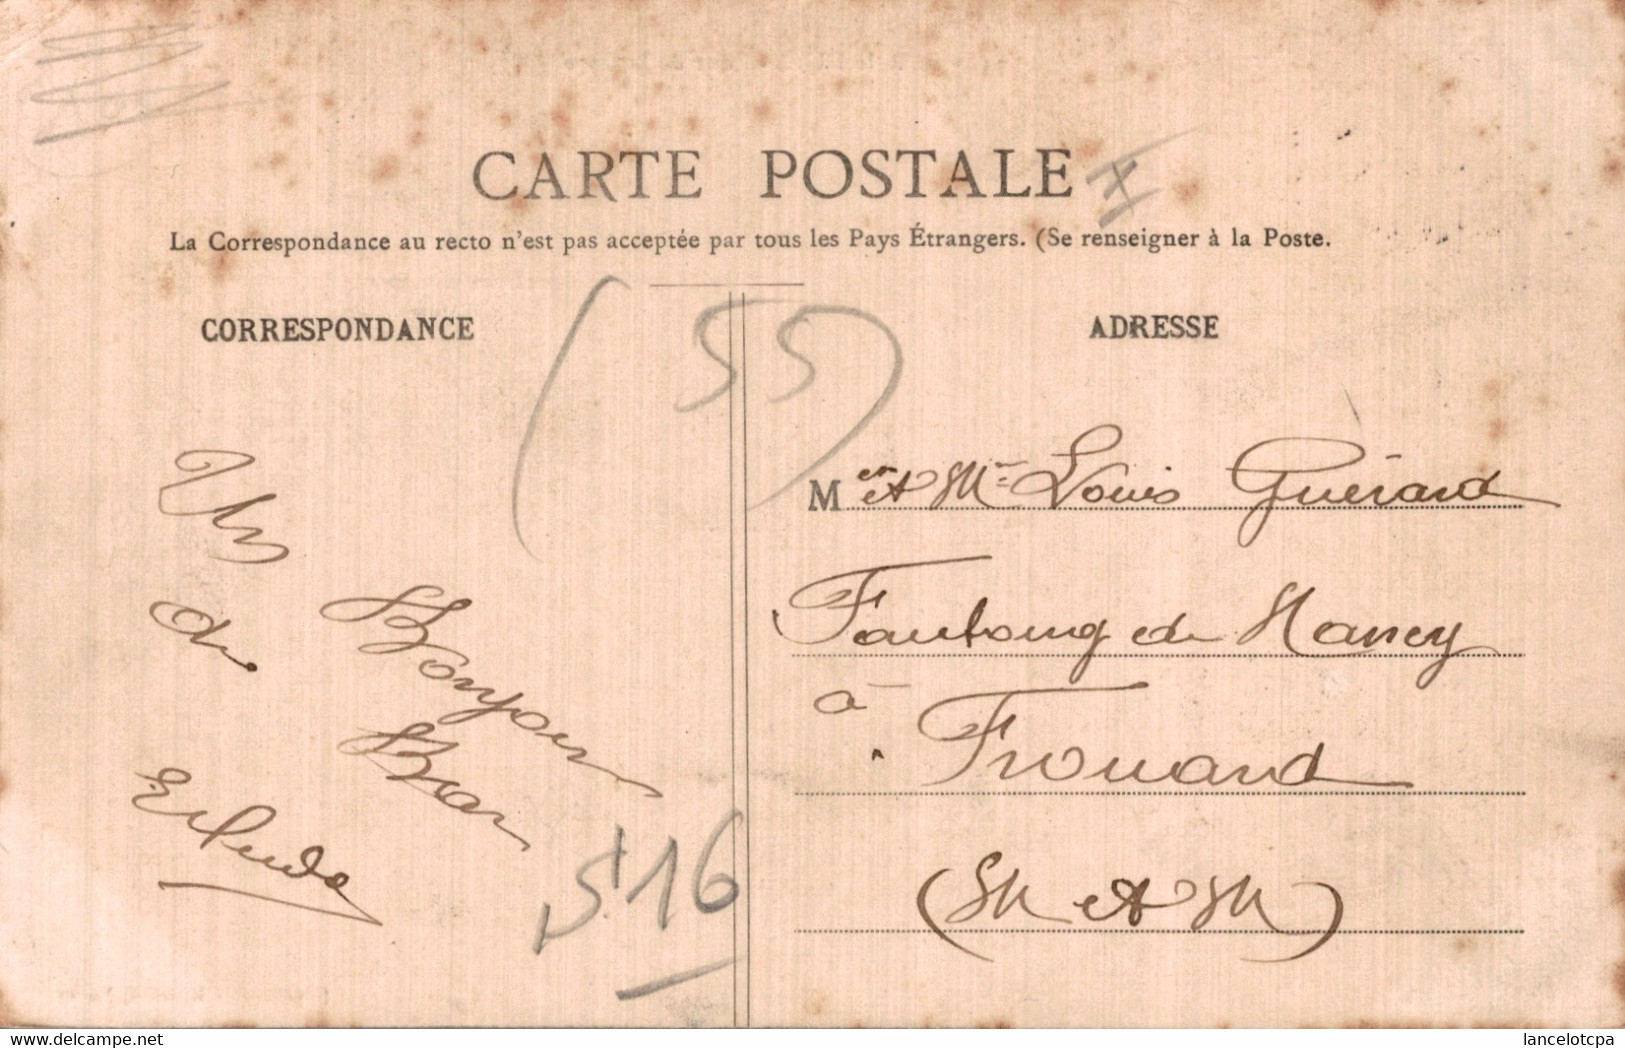 CARTE POSTALE
La Correspondance au recto n'est pas acceptée par tous les Pays Étrangers. (Se renseigner à la Poste.
CORRESPONDANCE
(55)
Un Bonjour
de Bar
516
ADRESSE
M et M Louis Guérard
Faubourg de Nancy
à Frouard
(M et M)
delcampe.net
lancelotcpa